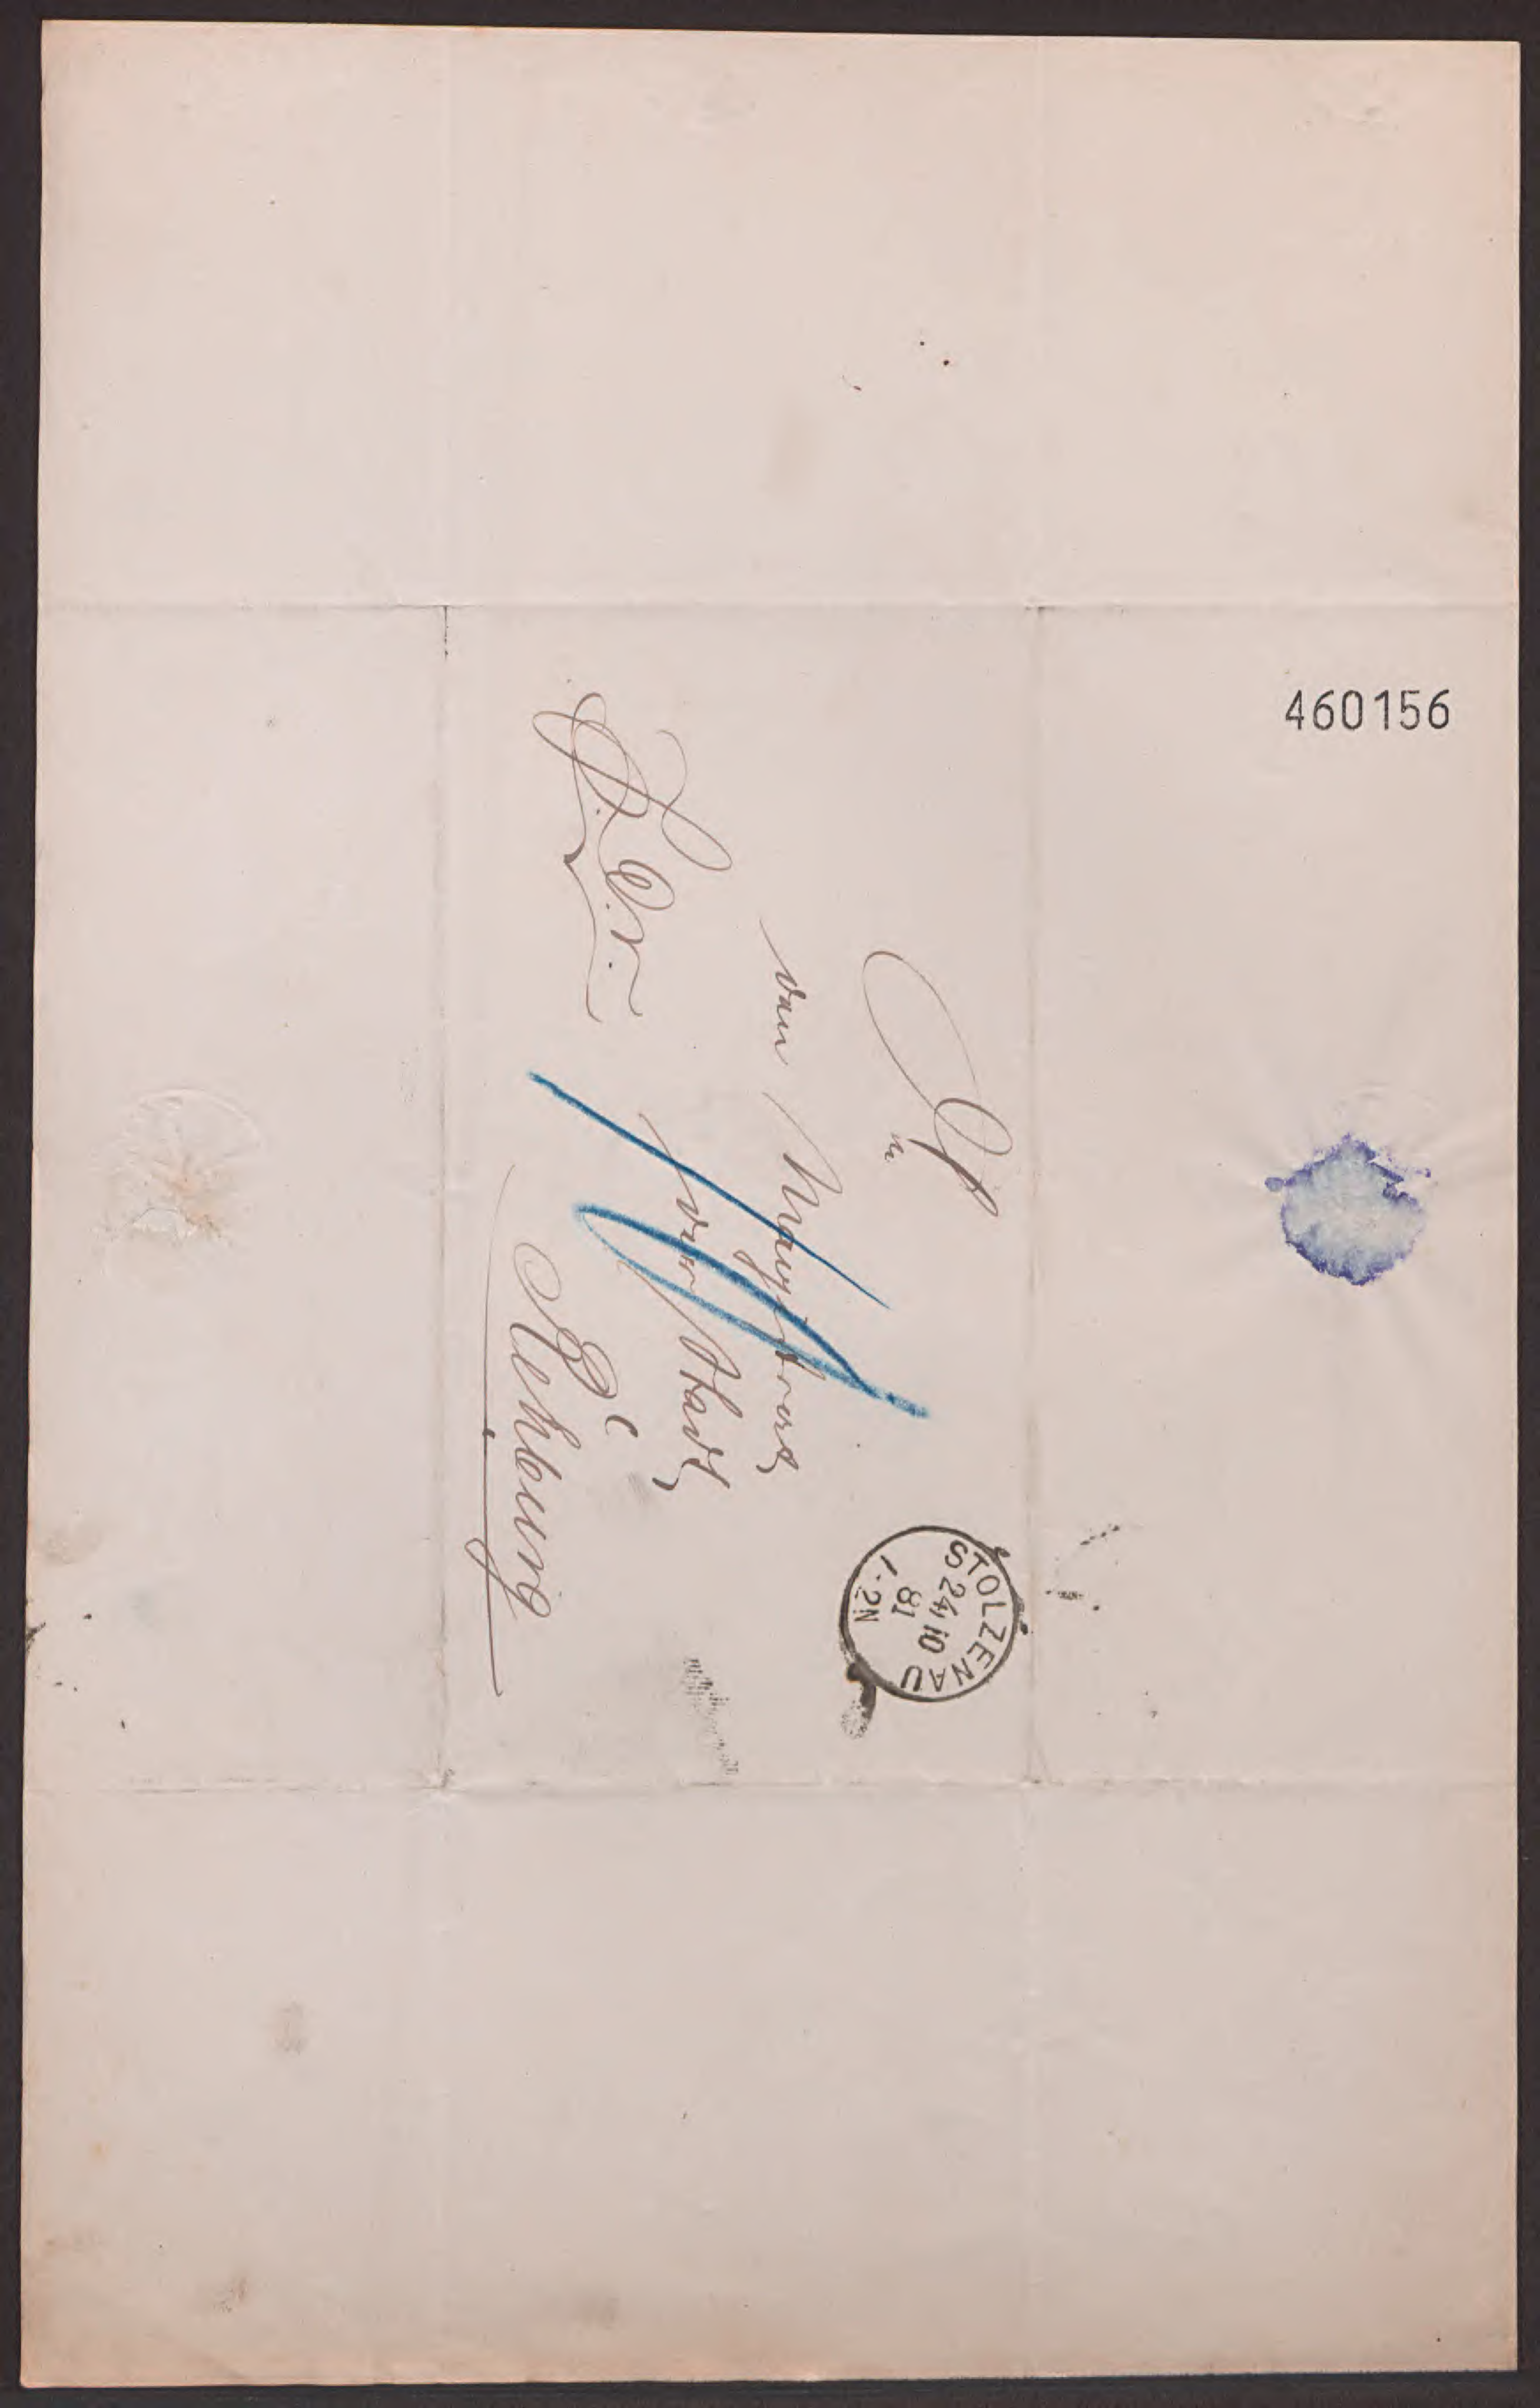 460156
An
den Magistrat
der Stadt
Rehburg
STOLZENAU
24 10
81
1-2N